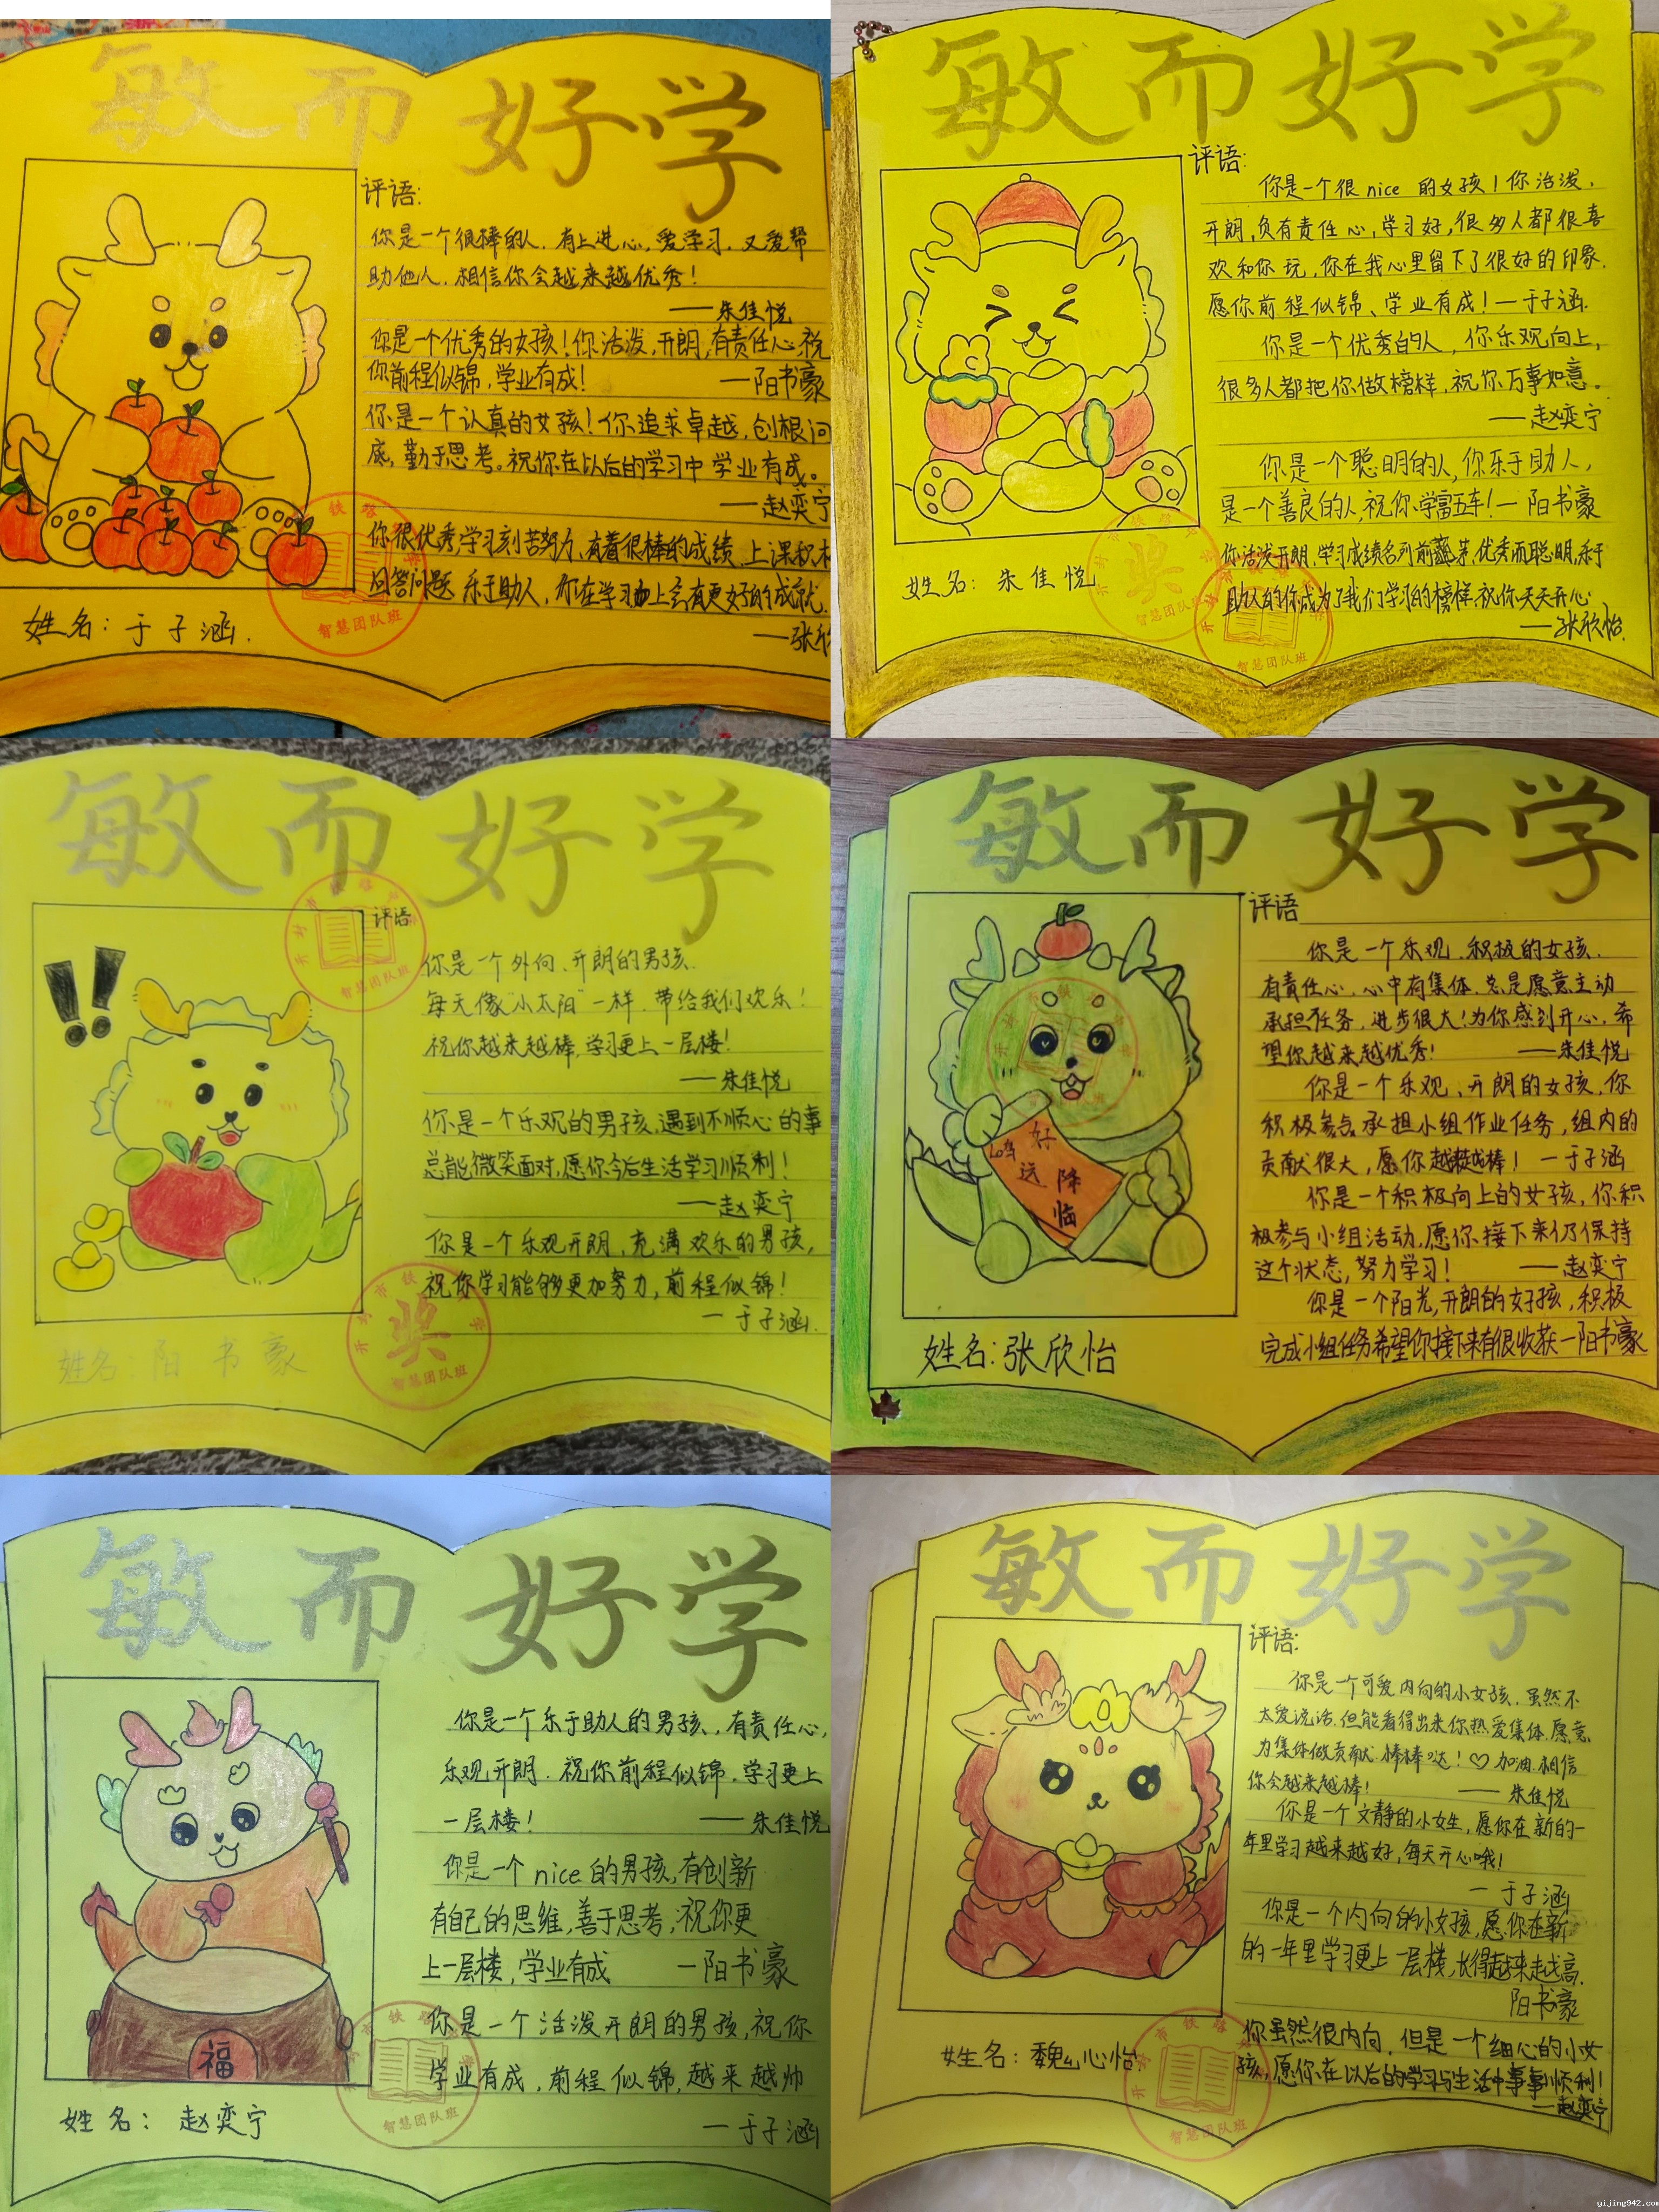 敏而好学
评语:
你是一个很棒的人.有上进心,爱学习.又爱帮
助他人.相信你会越来越优秀!
——朱佳悦
你是一个优秀的女孩!你活泼,开朗,有责任心,祝
你前程似锦,学业有成!
—阳书豪
你是一个认真的女孩!你追求卓越,创根问
底,勤于思考。祝你在以后的学习中学业有成。
——赵奕宁
你很优秀,学习刻苦努力,有着很棒的成绩,上课积
回答问题 乐于助人,你在学习上会有更好的成就.
—张
姓名:于子涵.
智慧团队班
敏而好学
评语:
你是一个很nice 的女孩!你活泼,
开朗,负有责任心,学习好,很多人都很喜
欢和你玩,你在我心里留下了很好的印象.
愿你前程似锦、学业有成!—于子涵.
你是一个优秀的人,你乐观向上,
很多人都把你做榜样,祝你万事如意。
——赵奕宁
你是一个聪明的人,你乐于助人,
是一个善良的人,祝你学富五车!—阳书豪
你活泼开朗,学习成绩名列前茅,优秀而聪明,乐于
助人的你成为了我们学习的榜样.祝你天天开心
——张欣怡.
姓名:朱佳悦
奖
智慧团队班
敏而好学
评语
你是一个外向、开朗的男孩.
每天像"小太阳"一样.带给我们欢乐!
祝你越来越棒,学习更上一层楼!
——朱佳悦
你是一个乐观的男孩,遇到不顺心的事
总能微笑面对,愿你今后生活学习顺利!
——赵奕宁
你是一个乐观开朗,充满欢乐的男孩,
祝你学习能够更加努力,前程似锦!
—于子涵.
姓名:阳书豪
智慧团队班
奖
智慧团队班
敏而好学
评语
你是一个乐观.积极的女孩.
有责任心.心中有集体.总是愿意主动
承担任务,进步很大!为你感到开心.希
望你越来越优秀! ——朱佳悦
你是一个乐观、开朗的女孩,你
积极参与承担小组作业任务,组内的
贡献很大,愿你越来越棒! —于子涵
你是一个积极向上的女孩,你积
极参与小组活动.愿你接下来仍保持
这个状态,努力学习! ——赵奕宁
你是一个阳光,开朗的好孩,积极
完成小组任务希望你接下来有很收获—阳书豪
好运降临
姓名:张欣怡
敏而好学
你是一个乐于助人的男孩,有责任心,
乐观开朗.祝你前程似锦.学习更上
一层楼! ——朱佳悦
你是一个nice的男孩,有创新
有自己的思维,善于思考,祝你更
上一层楼,学业有成 —阳书豪
你是一个活泼开朗的男孩,祝你
学业有成,前程似锦,越来越帅
—于子涵
福
姓名:赵奕宁
智慧团队班
敏而好学
评语:
你是一个可爱内向的小女孩.虽然不
太爱说话.但能看得出来你热爱集体.愿意
为集体做贡献.棒棒哒!♡加油.相信
你会越来越棒! ——朱佳悦
你是一个文静的小女生,愿你在新的一
年里学习越来越好,每天开心哦!
—于子涵
你是一个内向的小女孩,愿你在新
的一年里学习更上一层楼,长得越来越高.
阳书豪
你虽然很内向,但是一个细心的小女
孩,愿你在以后的学习与生活中事事顺利!
—赵奕宁
姓名:魏心怡
智慧团队班
yijing942.com